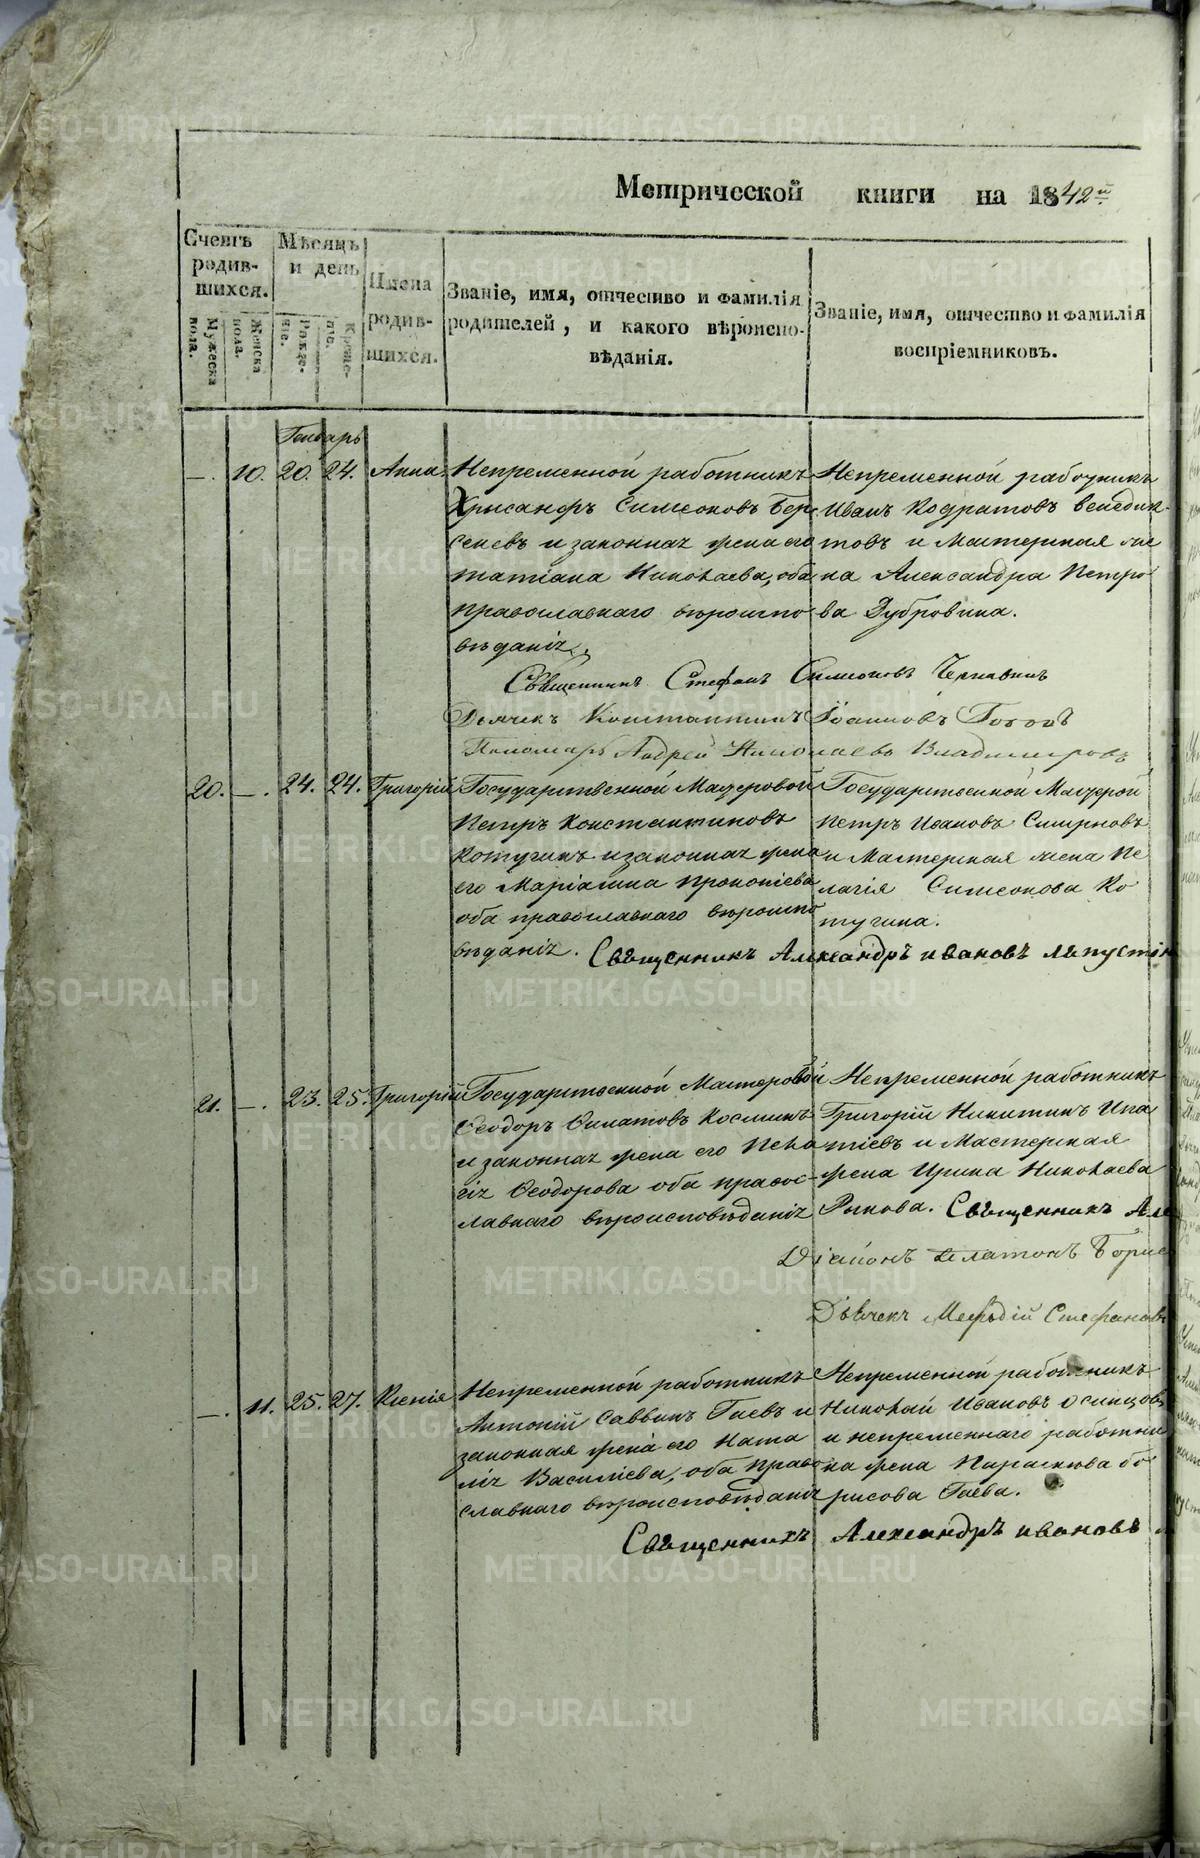 Метрической книги на 1842й
Счетъ родив-шихся.
Мужеска пола.
Женска пола.
Мѣсяцъ и день
Рожде-нія.
Креще-нія.
Имена родив-шихся.
Званіе, имя, отчество и фамилія
родителей, и какого вѣроиспо-
вѣданія.
Званіе, имя, отчество и фамилія
воспріемниковъ.
Генварь
—. 10. 20. 24. Анна.
Непременной работникъ
Хрисанфъ Симеоновъ Бер
сеневъ и законная жена его
татіана Николаева, оба
православнаго вѣроиспо
вѣданія.
Непременной работникъ
Иванъ Кодратовъ венедик-
товъ и Мастерская же
на Александра Петро
ва Дубровина.
Священникъ Стефанъ Симеоновъ Чернавинъ
Дьячекъ Константинъ Іоанновъ Поповъ
Пономарь Андрей Николаевъ Владимировъ
20. —. 24. 24. Григорій
Государственной Мастеровой
Петръ Константиновъ
Котугинъ и законная жена
его Маріамна Прокопіева
оба православнаго вѣроиспо
вѣданія.
Государственной Мастерой
Петръ Ивановъ Смирновъ
и Мастерская жена Пе
лагія Симеонова Ко
тугина.
Священникъ Александръ ивановъ лапустін
21. —. 23. 25. Григорій
Государственной Мастеровой
Ѳеодоръ Филатовъ Косминъ
и законная жена его Пела
гія Ѳеодорова оба правос-
лавнаго вѣроисповѣданія
Непременной работникъ
Григорій Никитинъ Ипа
тіевъ и Мастерская
жена Ирина Николаева
Рыкова. Священникъ Але
Діаконъ Платонъ Борис
Дьячекъ Меѳодій Стефановъ
—. 11. 25. 27. Ксенія
Непременной работникъ
Антоній Саввинъ Гаевъ и
законная жена его Ната
лія Василіева, оба право
славнаго вѣроисповѣданія
Непременной работникъ
Николай Ивановъ Осинцовъ
и непременнаго работни
ка жена Параскева бо
рисова Гаева.
Священникъ Александръ ивановъ
METRIKI.GASO-URAL.RU